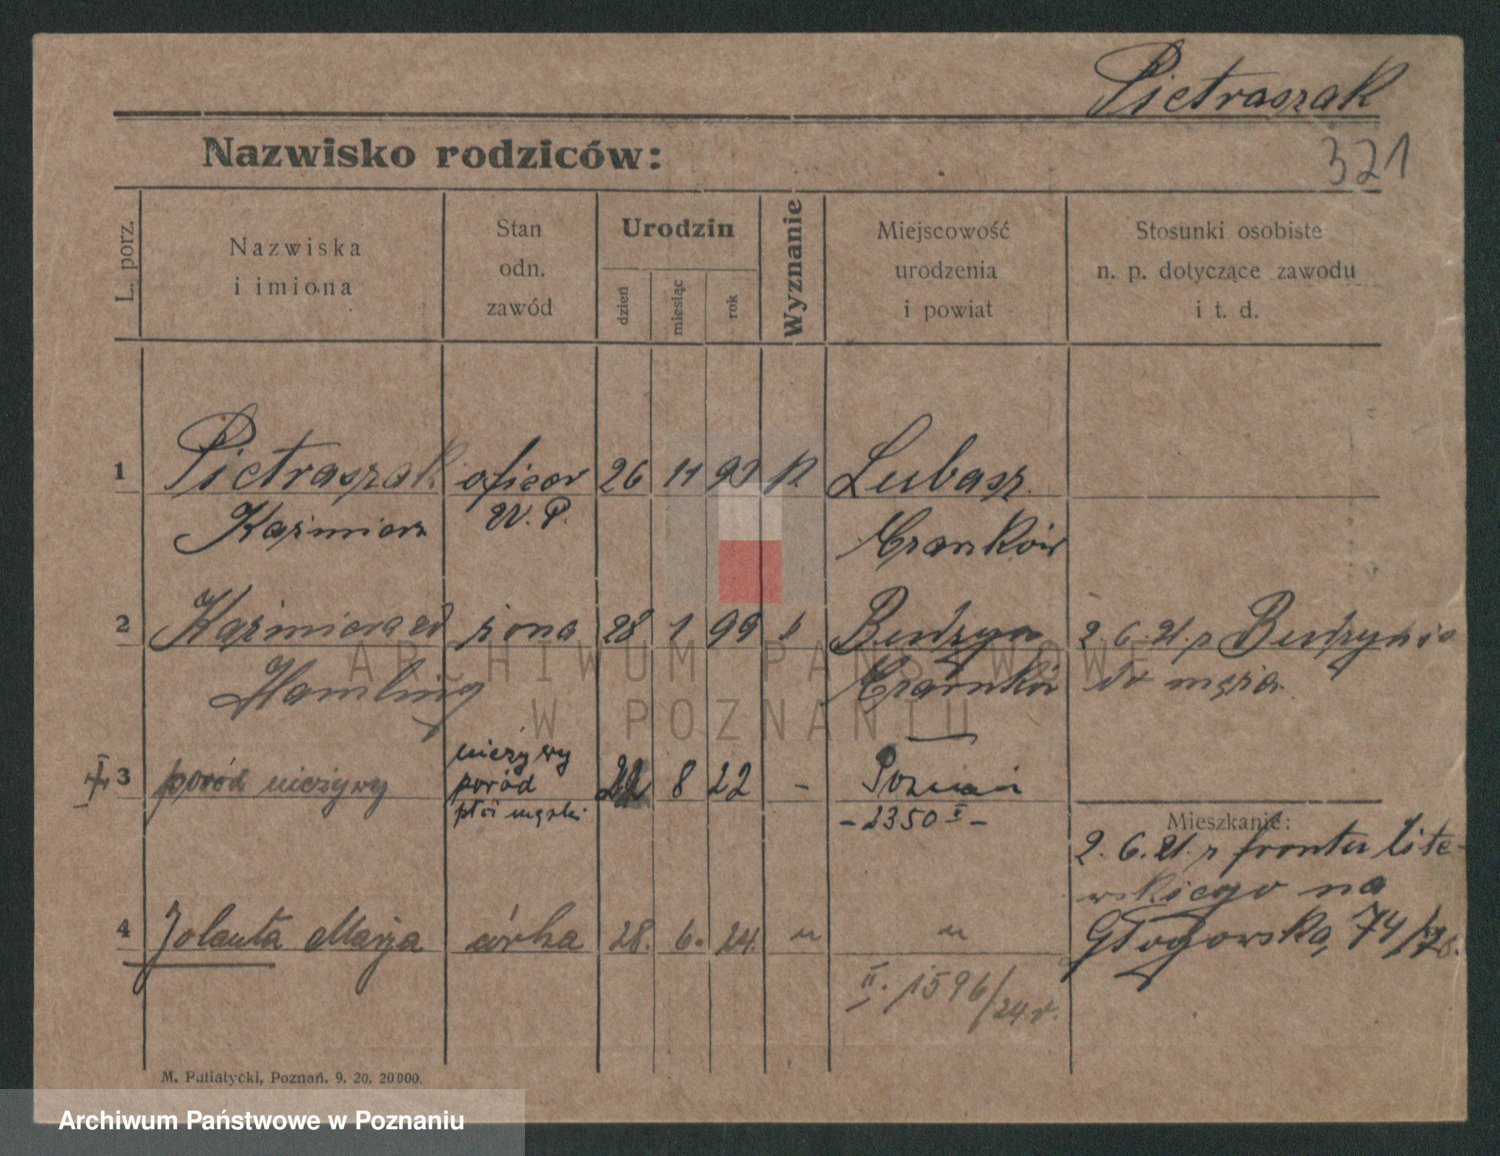 Pietraszak
Nazwisko rodziców:
321
L. porz.
Nazwiska
i imiona
Stan
odn.
zawód
Urodzin
dzień
miesiąc
rok
Wyznanie
Miejscowość
urodzenia
i powiat
Stosunki osobiste
n. p. dotyczące zawodu
i t. d.
1 Pietraszak oficer 26 11 93 k Lubasz
Kaźmierz W. P. Czarnków
2 Kaźmiera zd żona 28 1 99 " Burdzyn 2. 6. 21. z
Hamling Czarnków do męża
3 poród nieżywy nieżywy 22 8 22 - Poznań
poród
płci męski - 2350 I -
Mieszkanie:
2. 6. 21. z frontu lite-
wskiego na
Głogowska, 74/
4 Jolanta Marja córka 28. 6. 24. " "
II. 1596/24 r.
M. Putiatycki, Poznań. 9. 20. 20000.
ARCHIWUM PAŃSTWOWE
W POZNANIU
Archiwum Państwowe w Poznaniu